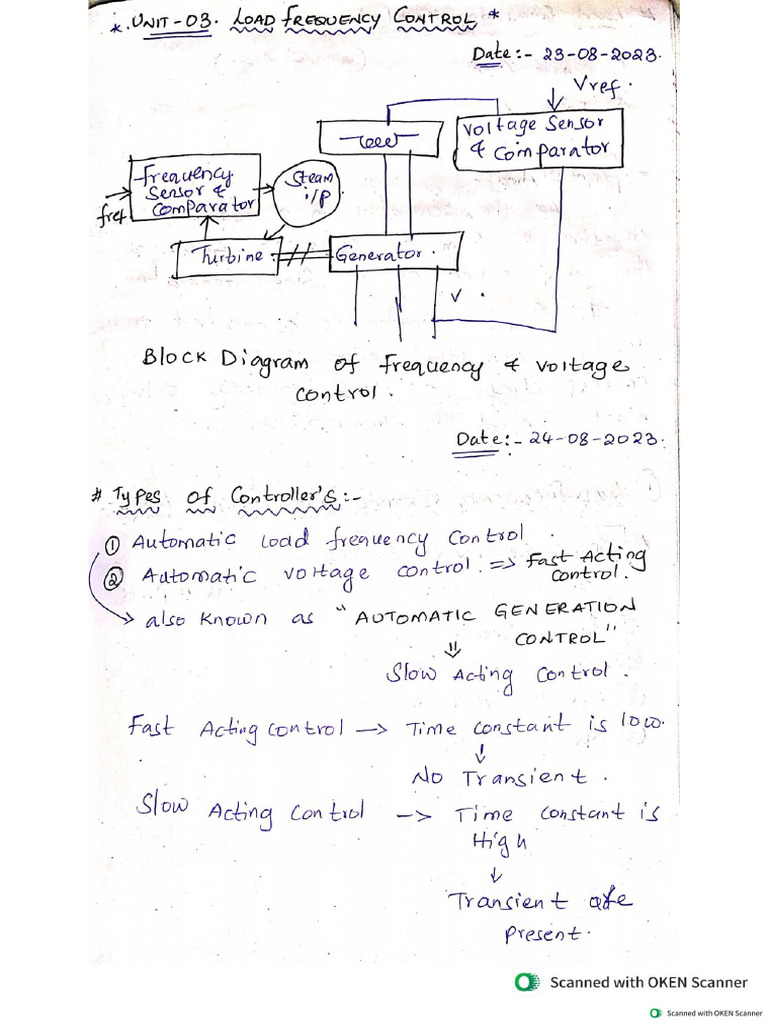 *. UNIT-03. LOAD FREQUENCY CONTROL *
Date:- 23-08-2023.
Vref.
Voltage Sensor
& Comparator
Frequency
Sensor &
Comparator
fref
Steam
i/p
Turbine
Generator.
V.
Block Diagram of frequency & voltage
control.
Date:- 24-08-2023.
# Types of Controller's:-
① Automatic Load frequency Control.
② Automatic voltage control. => Fast Acting
Control.
-> also known as "AUTOMATIC GENERATION
CONTROL"
⇓
Slow Acting Control.
Fast Acting control -> Time constant is low.
↓
No Transient.
Slow Acting Control -> Time constant is
High
↓
Transient are
present.
Scanned with OKEN Scanner
Scanned with OKEN Scanner